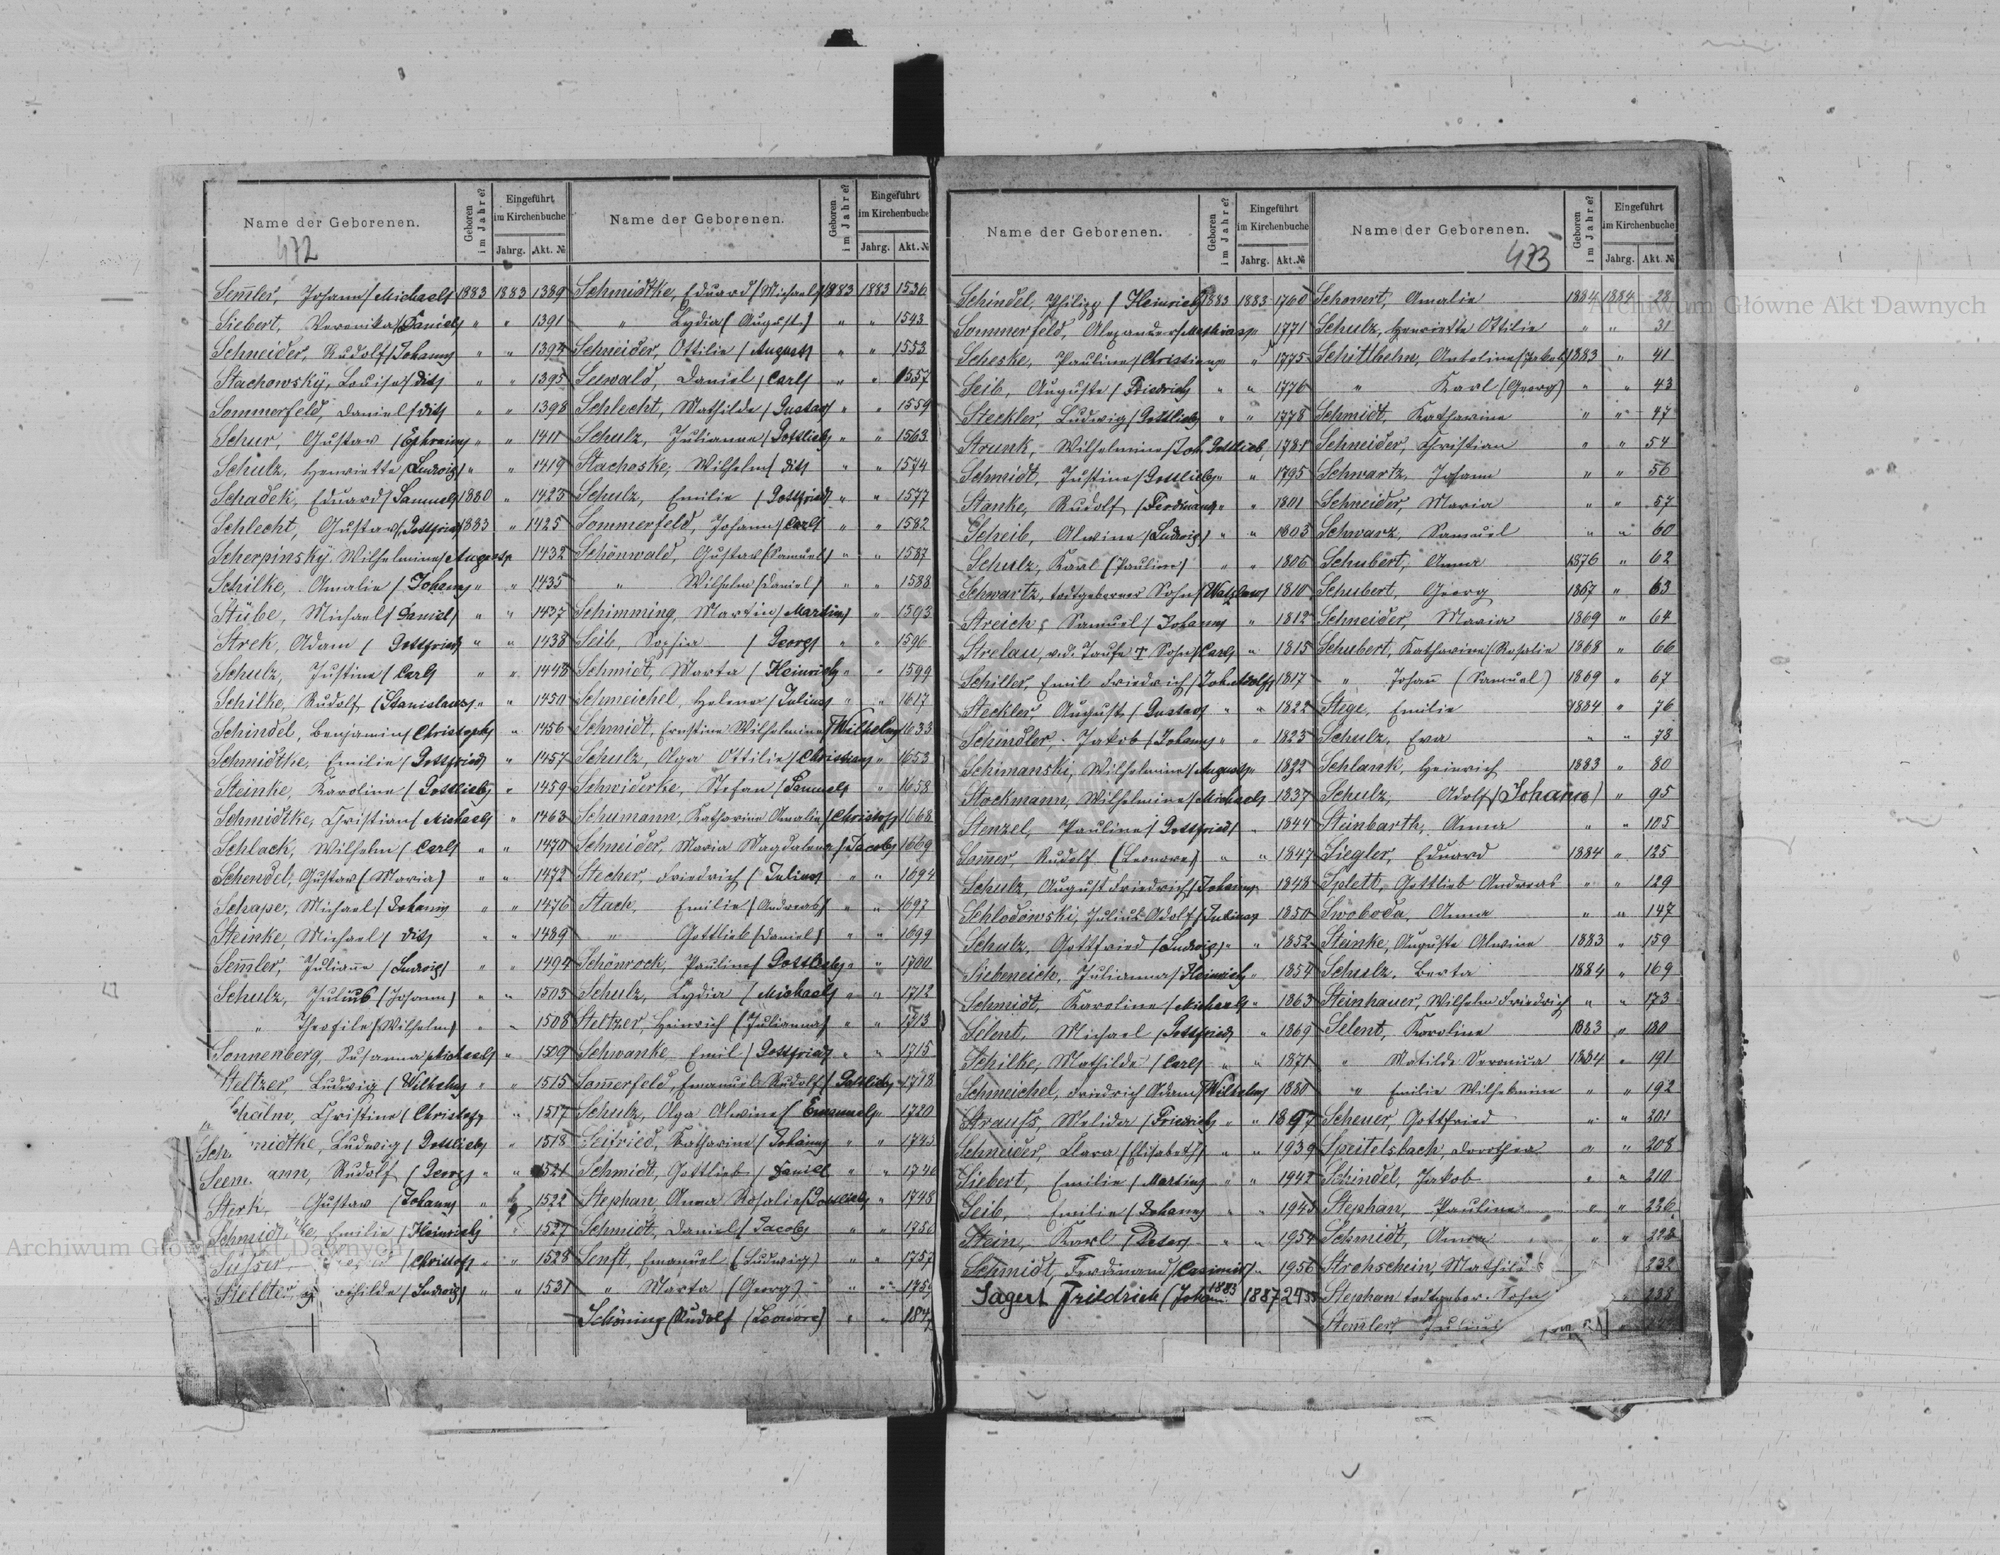 Name der Geborenen.
Geboren im Jahre?
Eingeführt im Kirchenbuche
Jahrg. Akt. №
472
Semler, Johann (Michael) 1883 1883 1389
Siebert, Veronika (Daniel) " " 1391
Schneider, Rudolf (Johann) " " 1394
Stachowsky, Louise (dito) " " 1395
Sommerfeld, Daniel (dito) " " 1398
Schur, Gustav (Ephraim) " " 1411
Schulz, Henriette (Ludwig) " " 1419
Schadek, Eduard (Samuel) 1880 " 1423
Schlecht, Gustav (Gottfried) 1883 " 1425
Scherpinsky, Wilhelmine (August) " 1432
Schilke, Amalie (Johann) " " 1435
Stübe, Michael (Daniel) " " 1437
Strek, Adam (Gottfried) " " 1438
Schulz, Justine (Carl) " " 1448
Schilke, Rudolf (Stanislaus) " " 1450
Schindel, Benjamin (Christoph) " 1456
Schmidtke, Emilie (Gottfried) " 1457
Steinke, Karoline (Gottlieb) " 1459
Schmidtke, Christian (Michael) " 1463
Schlack, Wilhelm (Carl) " " 1470
Schendel, Gustav (Maria) " " 1472
Schape, Michael (Johann) " " 1476
Steinke, Michael (dito) " " 1489
Semler, Julianne (Ludwig) " " 1494
Schulz, Julius (Johann) " " 1503
" Theofile (Wilhelm) " " 1508
Sonnenberg, Susanna (Michael) " 1509
Steltzer, Ludwig (Wilhelm) " " 1515
Christine (Christof) " 1517
Ludwig (Gottlieb) " 1518
Rudolf (Georg) " " 1521
Sterk, Gustav (Johann) " 1522
Emilie (Heinrich) " 1527
(Christof) " " 1528
(Ludwig) " " 1531
Name der Geborenen.
Geboren im Jahre?
Eingeführt im Kirchenbuche
Jahrg. Akt. №
Schmidtke, Eduard (Michael) 1883 1883 1536
" Lydia (August) " " 1543
Schneider, Ottilie (August) " " 1553
Seewald, Daniel (Carl) " " 1557
Schlecht, Mathilde (Gustav) " " 1559
Schulz, Julianne (Gottlieb) " " 1563
Stachoske, Wilhelm (dito) " " 1574
Schulz, Emilie (Gottfried) " " 1577
Sommerfeld, Johann (Carl) " " 1582
Schönwald, Gustav (Samuel) " " 1587
" Wilhelm (Daniel) " " 1588
Schimming, Martin (Martin) " 1593
Seib, Sophia (Georg) " " 1596
Schmidt, Marta (Heinrich) " " 1599
Schmeichel, Helena (Julius) " " 1617
Schmidt, Ernstine Wilhelmine (Wilhelm) 1633
Schulz, Olga Ottilie (Christian) " 1653
Schwiderke, Stefan (Samuel) " 1658
Schumann, Katharina Amalie (Christof) 1668
Schneider, Maria Magdalena (Jacob) 1669
Stecher, Friedrich (Julius) " " 1694
Stach, Emilie (Andreas) " " 1697
" Gottlieb (Daniel) " " 1699
Schönrock, Pauline (Gottlieb) " " 1700
Schulz, Lydia (Michael) " " 1712
Steltzer, Heinrich (Julianna) " " 1713
Schwanke, Emil (Gottfried) " " 1715
Somerfeld, Emanuel Rudolf (Gottlieb) " 1718
Schulz, Olga Alwine (Emanuel) " 1720
Seifried, Katharina (Johann) " "
Schmidt, Gottlieb (Daniel " "
Stephan, Anna Rosalie (Gottlieb) " 1748
Schmidt, Daniel (Jacob) " " 1750
Senft, Emanuel (Ludwig) " " 1757
" Marta (Georg) " "
Schöning Rudolf (Leonore) " "
Name der Geborenen.
Geboren im Jahre?
Eingeführt im Kirchenbuche
Jahrg. Akt. №
Schindel, Philipp (Heinrich) 1883 1883 1760
Sommerfeld, Alexander (Mathias) " 1771
Scheske, Pauline (Christian) " " 1775
Seib, Auguste (Friedrich " " 1776
Steckler, Ludwig (Gottlieb) " " 1778
Strunk, Wilhelmine (Joh. Gottlieb) 1781
Schmidt, Justine (Gottlieb) " " 1795
Stanke, Rudolf (Ferdinand) " " 1801
Scheib, Alwine (Ludwig) " " 1803
Schulz, Karl (Pauline) " " 1806
Schwartz, todtgeborner Sohn (Watzlaw) 1810
Streich, Samuel (Johann) " " 1812
Strelau, v.d. Taufe † Sohn (Carl) " 1815
Schiller, Emil Friedrich (Joh. Adolf) 1817
Steckler, August (Gustav) " " 1822
Schindler, Jakob (Johann) " " 1825
Schimanski, Wilhelmine (August) " 1832
Stockmann, Wilhelmine (Michael) 1837
Stenzel, Pauline (Gottfried) " 1844
Somer, Rudolf (Leonore) " " 1847
Schulz, August Friedrich (Johann) 1848
Schlodowski, Julius Adolf (Julius) 1850
Schulz, Gottfried (Ludwig) " " 1852
Siebeneich, Julianna (Heinrich) " 1854
Schmidt, Karoline (Michael) " 1863
Selent, Michael (Gottfried) " 1869
Schilke, Mathilde (Carl) " " 1871
Schmeichel, Friedrich Adam (Wilhelm) 1880
Strauss, Melida (Friedrich) " " 1897
Schneider, Clara (Elisabeth) " " 1939
Siebert, Emilie (Martin) " " 1942
Seib, Emilie (Johann) " "
Stein, Karl (Peter) " " 1954
Schmidt, Ferdinand (Casimir) " 1956
Sagert Friedrich (Johann) 1883 1887
Name der Geborenen.
Geboren im Jahre?
Eingeführt im Kirchenbuche
Jahrg. Akt. №
473
Schonert, Amalie 1884 1884 28
Schulz, Henriette Ottilie " " 31
Schitthelm, Antoline (Jakob) 1883 " 41
" Karl (Georg) " " 43
Schmidt, Katharine " " 47
Schneider, Christian " " 54
Schwartz, Johann " " 56
Schneider, Maria " " 57
Schwarz, Samuel " " 60
Schubert, Anna 1876 " 62
Schubert, Georg 1867 " 63
Schneider, Maria 1869 " 64
Schubert, Katharine (Rosalie 1868 " 66
" Johann (Samuel) 1869 " 67
Stege, Emilie 1884 " 76
Schulz, Eva " " 78
Schlank, Heinrich 1883 " 80
Schulz, Adolf (Johann) " " 95
Steinbarth, Anna " " 105
Siegler, Eduard 1884 " 125
Splett, Gottlieb Andreas " " 129
Swoboda, Anna " " 147
Steinke, Auguste Alwine 1883 " 159
Schulz, Berta 1884 " 169
Steinhauer, Wilhelm Friedrich " " 173
Selent, Karoline 1883 " 180
" Matilde Veronica 1884 " 191
" Emilie Wilhelmine " " 192
Scheuer, Gottfried " " 201
Speitelsbach, Dorothea " " 208
Schindel, Jakob " " 210
Stephan, Pauline " " 226
Schmidt, Anna " " 228
Strohschein, Mathild 232
Stephan todtgebor. Sohn
Stemler,
Archiwum Główne Akt Dawnych
Archiwum Główne Akt Dawnych